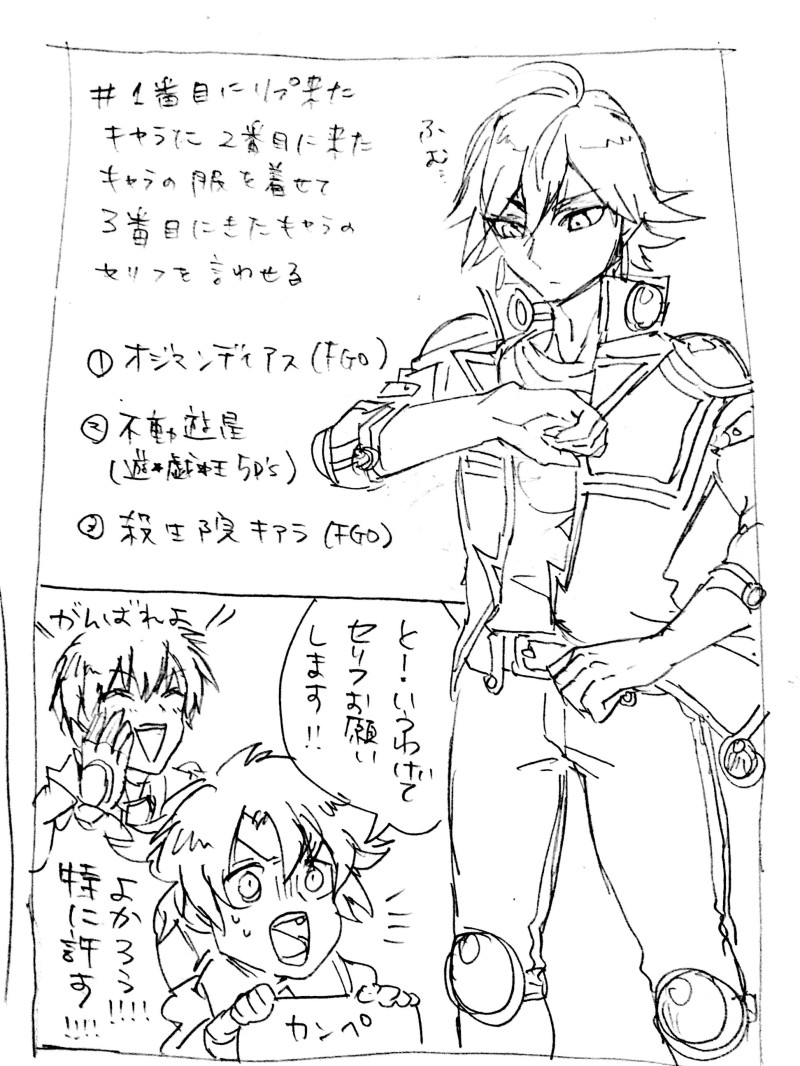 #1番目にリプ来た
キャラに2番目に来た
キャラの服を着せて
3番目にきたキャラの
セリフを言わせる
ふむ…
① オジマンディアス(FGO)
② 不動遊星
(遊*戯*王5D's)
③ 殺生院キアラ(FGO)
がんばれよ
と！いうわけで
セリフお願い
します!!
よかろう!!!!
特に許す!!!!
カンペ